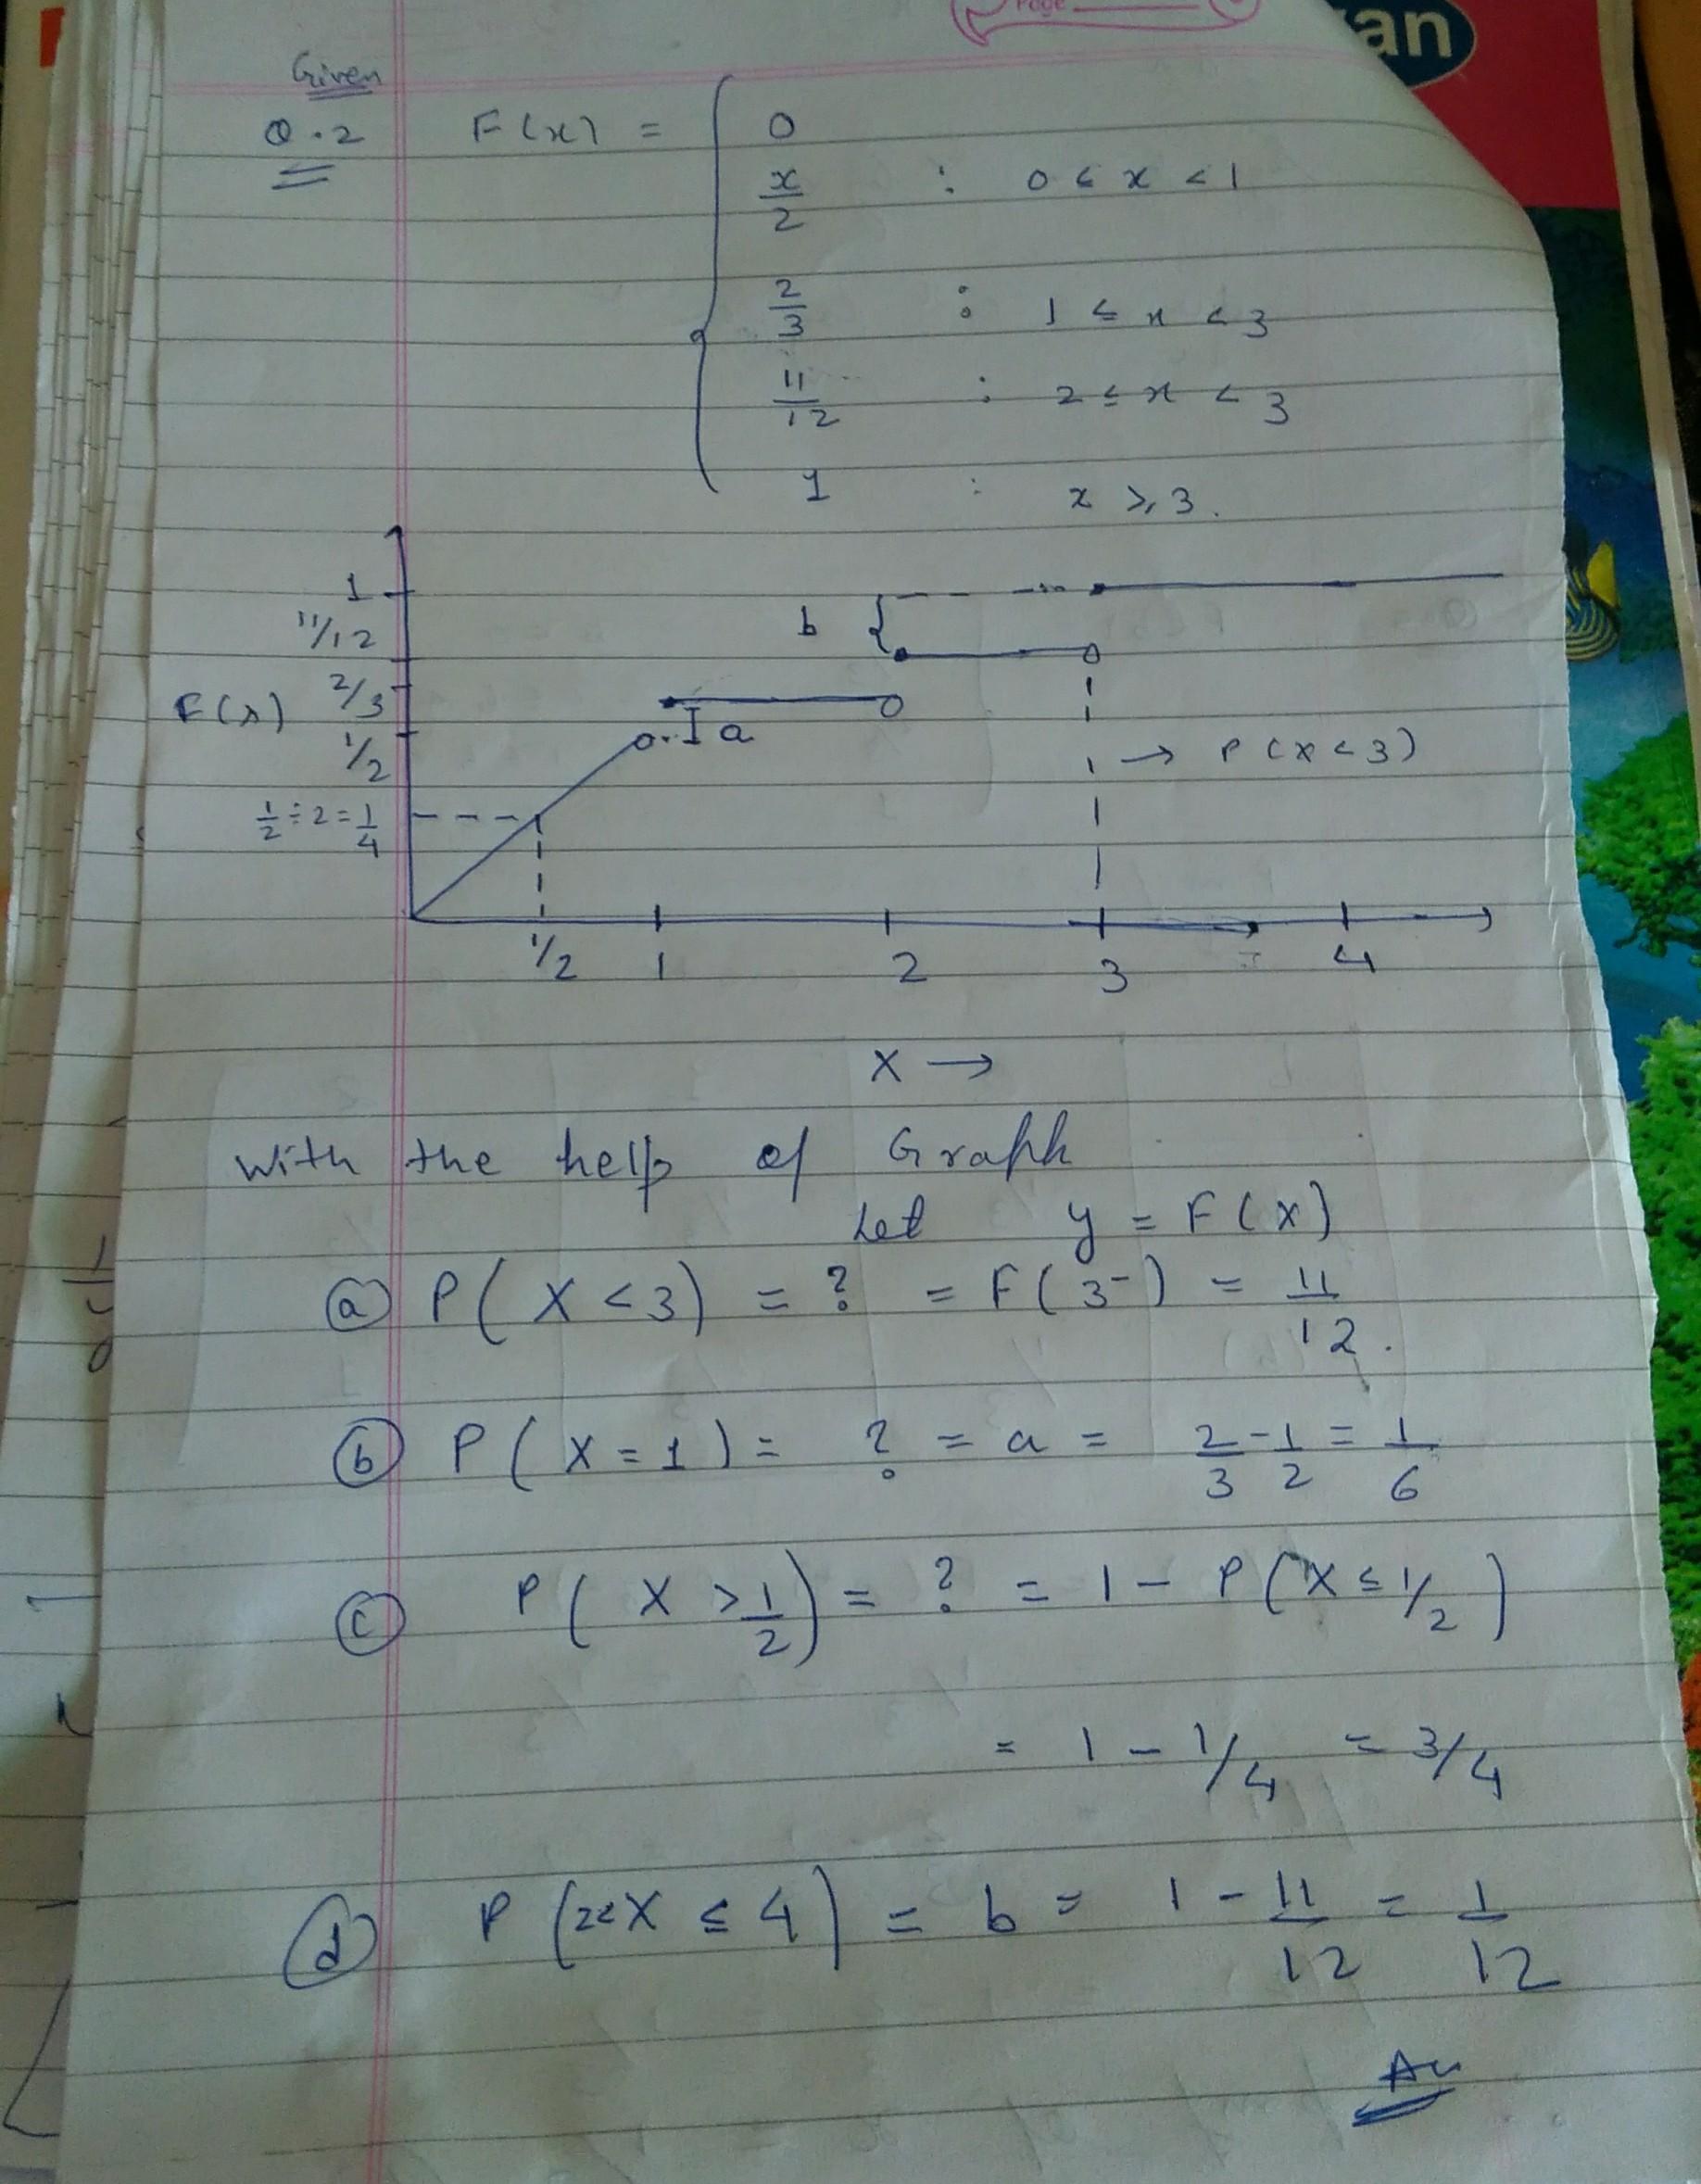 Page
an
Given
Q.2 F(x) = { 0
x/2 : 0 ≤ x < 1
2/3 : 1 ≤ x < 3
11/12 : 2 ≤ x < 3
1 : x ≥ 3.
1
11/12
b
2/3
F(x)
a
1/2
→ P(X < 3)
1/2 ÷ 2 = 1/4
1/2 1 2 3 4
X →
With the help of Graph
Let y = F(X)
(a) P(X < 3) = ? = F(3⁻) = 11/12.
(b) P(X = 1) = ? = a = 2/3 - 1/2 = 1/6
(c) P(X > 1/2) = ? = 1 - P(X ≤ 1/2)
= 1 - 1/4 = 3/4
(d) P(2 < X ≤ 4) = b = 1 - 11/12 = 1/12